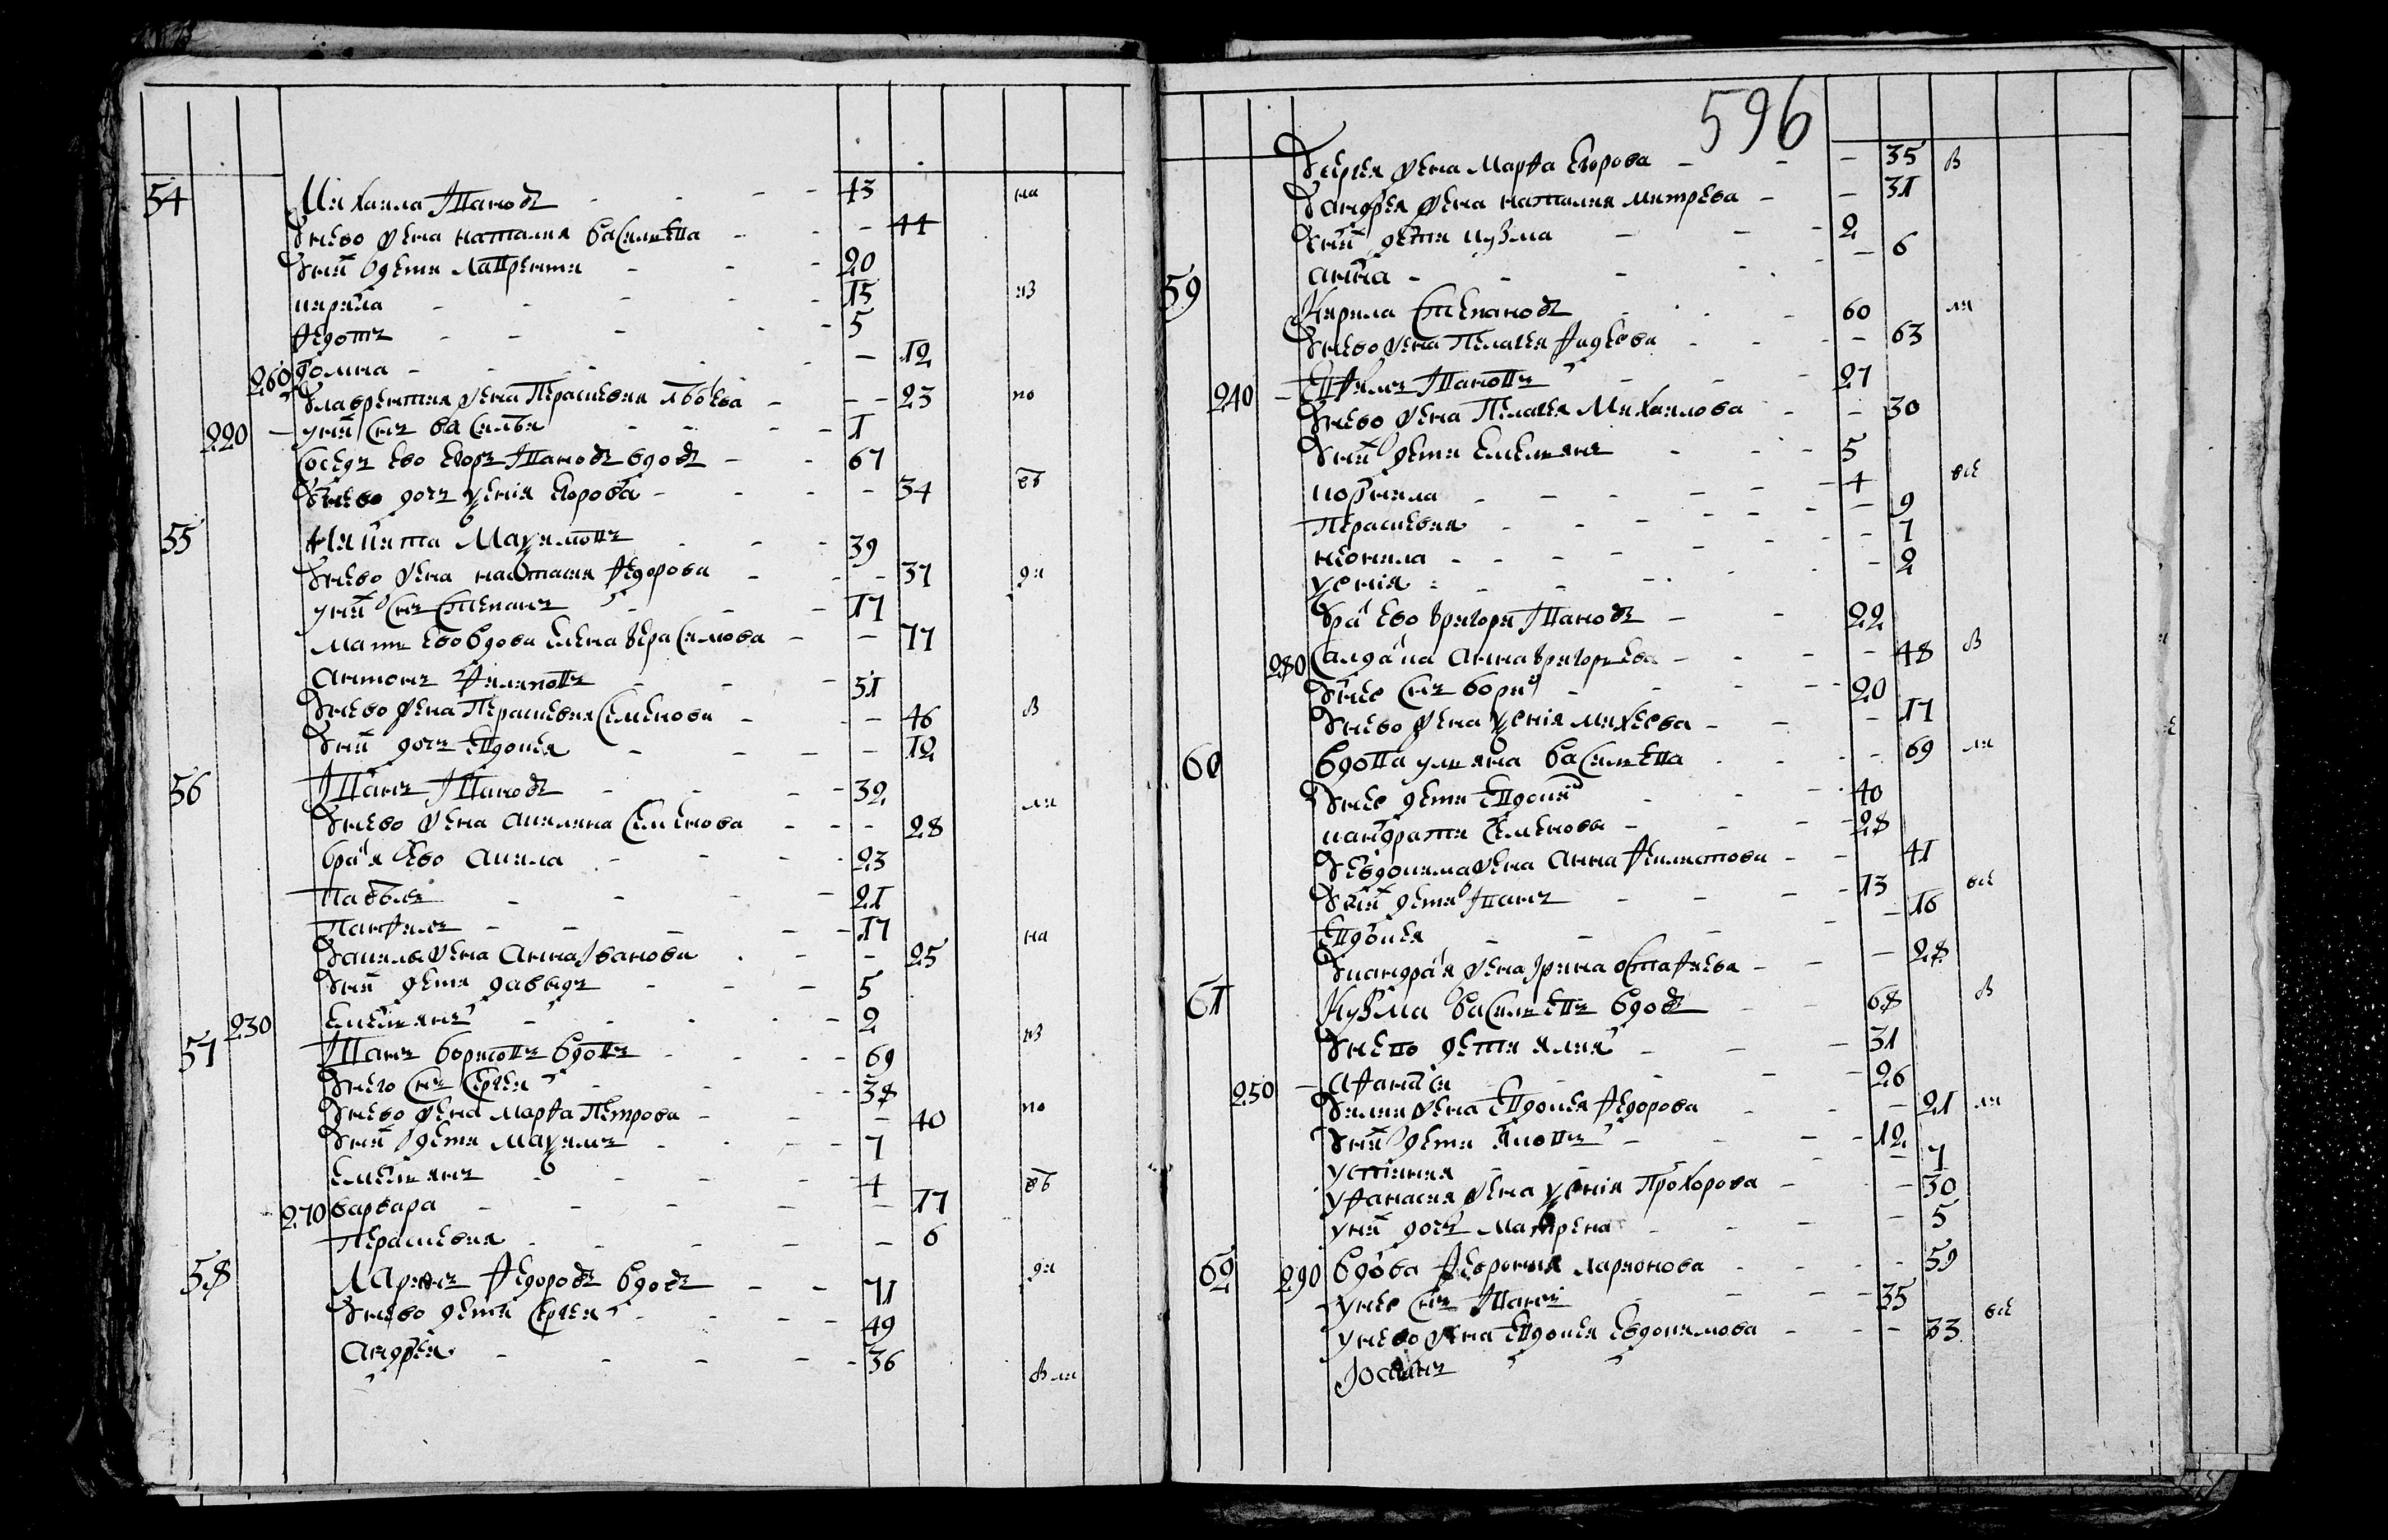 54 Михаила Иванов 43 на
У нево жена Наталия Василева 44
У них дети Лаврентеи 20
Кирила 15 из
Федот 5
260 Домна 12
У Лаврентия жена Прасковия Львова 23 по
220 У них сын Василеи 1
Сосед ево Егор Иванов вдов 67
У нево дочь Ксения Егорова 34 об
55 Никита Максимов 39
У нево жена Настасия Федорова 37 ди
У них сын Степан 17
Мать ево вдова Елена Герасимова 77
Антон Филипов 51
У нево жена Прасковия Семенова 46 в
У них дочь Евдокея 12
56 Иван Иванов 32
У нево жена Акилина Семенова 28 ли
Братья ево Акила 23
Павел 21
Панфил 17
У Акилы жена Анна Иванова 25 на
У них дети Давыд 5
230 Емельян 2
57 Иван Борисов вдов 69 из
У него сын Сергеи 38
У нево жена Марфа Петрова 40 по
У них дети Максим 7
Емельян 4
270 Варвара 17 об
Прасковия 6
58 Марк Федоров вдов 71 ди
У нево дети Сергеи 49
Андреи 36
в ли
596
У Сергея жена Марфа Егорова 35 в
У Андрея жена Наталия Митрева 31
У них дети Кузма 2
Анна 6
59 Кирила Степанов 60 ли
У нево жена Пелагея Фадеева 63
240 Ефим Иванов 27
У нево жена Пелагея Михаилова 30
У них дети Емельян 5
Корнила 4 все
Прасковия 9
Неонила 7
Ксения 2
Брат ево Григореи Иванов 22
280 Салдатка Анна Григорьева 48 в
У нее сын Борис 20
У нево жена Ксения Михеева 17
60 Вдова Ульяна Василева 69 ли
У нее дети Евдоким 40
Кандратеи Семеновы 28
У Евдокима жена Анна Филипова 41
У них дети Иван 13 все
Евдокея 16
У Кандратья жена Ирина Остафиева 28
61 Кузма Василев вдов 68 в
У нево дети Илия 31
250 Афанасеи 26
У Илии жена Евдокея Федорова 21 ли
У них дети Яков 12
Устиния 7
У Афанасия жена Ксения Прохорова 30
У них дочь Матрена 5
62 290 Вдова Феврония Ларионова 59
У нее сын Иван 35
У нево жена Евдокея Евдокимова 33 все